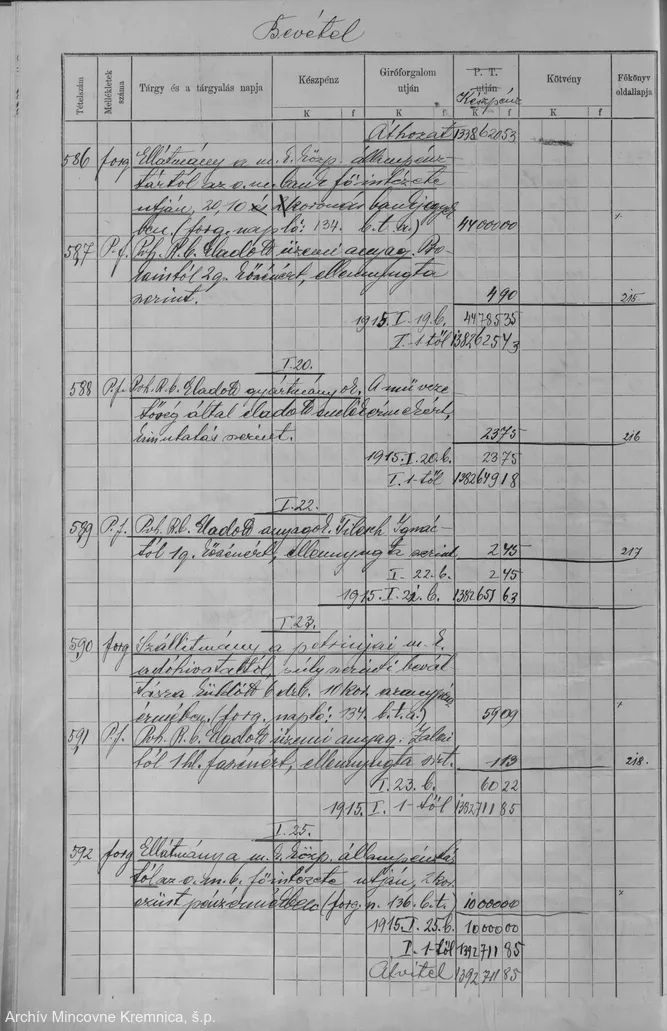 Bevétel
Tételszám
Mellékletek száma
Tárgy és a tárgyalás napja
Készpénz
K f
Giróforgalom utján
K f
P. T. utján
Készpénz
K f
Kötvény
K f
Főkönyv oldallapja
Áthozat 13386 20 53
586 forg Ellátmány a m. k. közp. állampénz-
tártól az o. m. bank főintézete
utján, 20, 10 és 2 koronás bankjegyek-
ben (forg. napló: 134. b. t. a.) 44000 00
587 P. f. Poh. R. b. Eladott üzemi anyag.
2 q. kőszénért, ellennyugta
szerint. 4 90 215
1915. I. 19. b. 44785 35
I. 1-től 1382625 43
I. 20.
588 P. f. Poh. R. b. Eladott gyártmányok. A műveze
tőség által eladott emlékérmekért,
kimutatás szerint. 23 75 216
1915. I. 20. b. 23 75
I. 1-től 1382649 18
I. 22.
589 P. f. Poh. R. b. Eladott anyagok. Ignác-
tól 1 q. kőszénért, ellennyugta szerint 2 45 217
I. 22. b. 2 45
1915. I. b. 1382651 63
I. 23.
590 forg Szállitmány a petrinjai m. k.
adóhivataltól súly szerinti bevál
tásra küldött 6 drb. kor. aranypénz
érmében. (forg. napló: 134. b. t. a.) 59 09
591 P. f. Poh. R. b. Eladott üzemi anyag.
tól 1 hl. faszénért, ellennyugta szrt. 1 13 218.
I. 23. b. 60 22
1915. I. 1-től 1382711 85
I. 25.
592 forg Ellátmány a m. k. közp. állampénztár
tól az o. m. b. főintézete utján, 2 kor.
ezüst pénzérmékben (forg. n. 136. b. t.) 10000 00
1915. I. 25. b. 10000 00
I. 1-től 1392711 85
Átvitel 1392711 85
Archív Mincovne Kremnica, š.p.